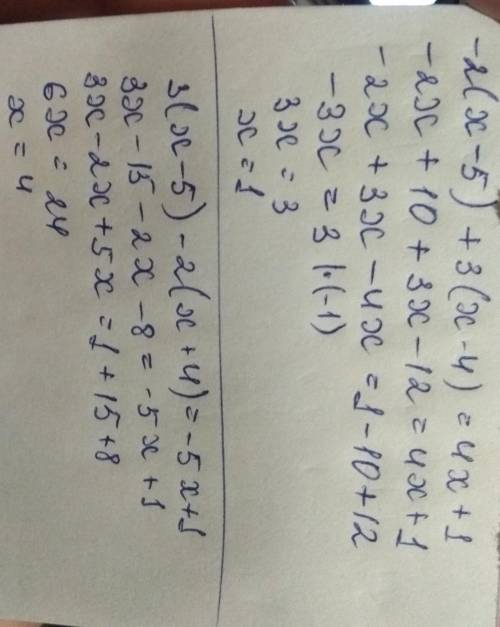 -2(x-5)+3(x-4)=4x+1
-2x+10+3x-12=4x+1
-2x+3x-4x=1-10+12
-3x=3 |·(-1)
3x=3
x=1
3(x-5)-2(x+4)=-5x+1
3x-15-2x-8=-5x+1
3x-2x+5x=1+15+8
6x=24
x=4